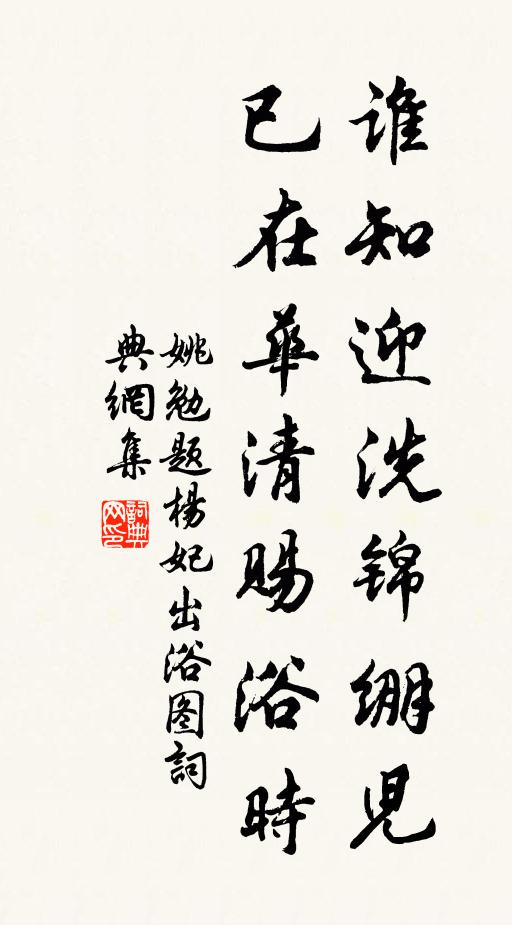 谁知迎洗锦绷児
已在華清赐浴時
姚勉题楊妃出浴图詞
典網集
詞典
网印